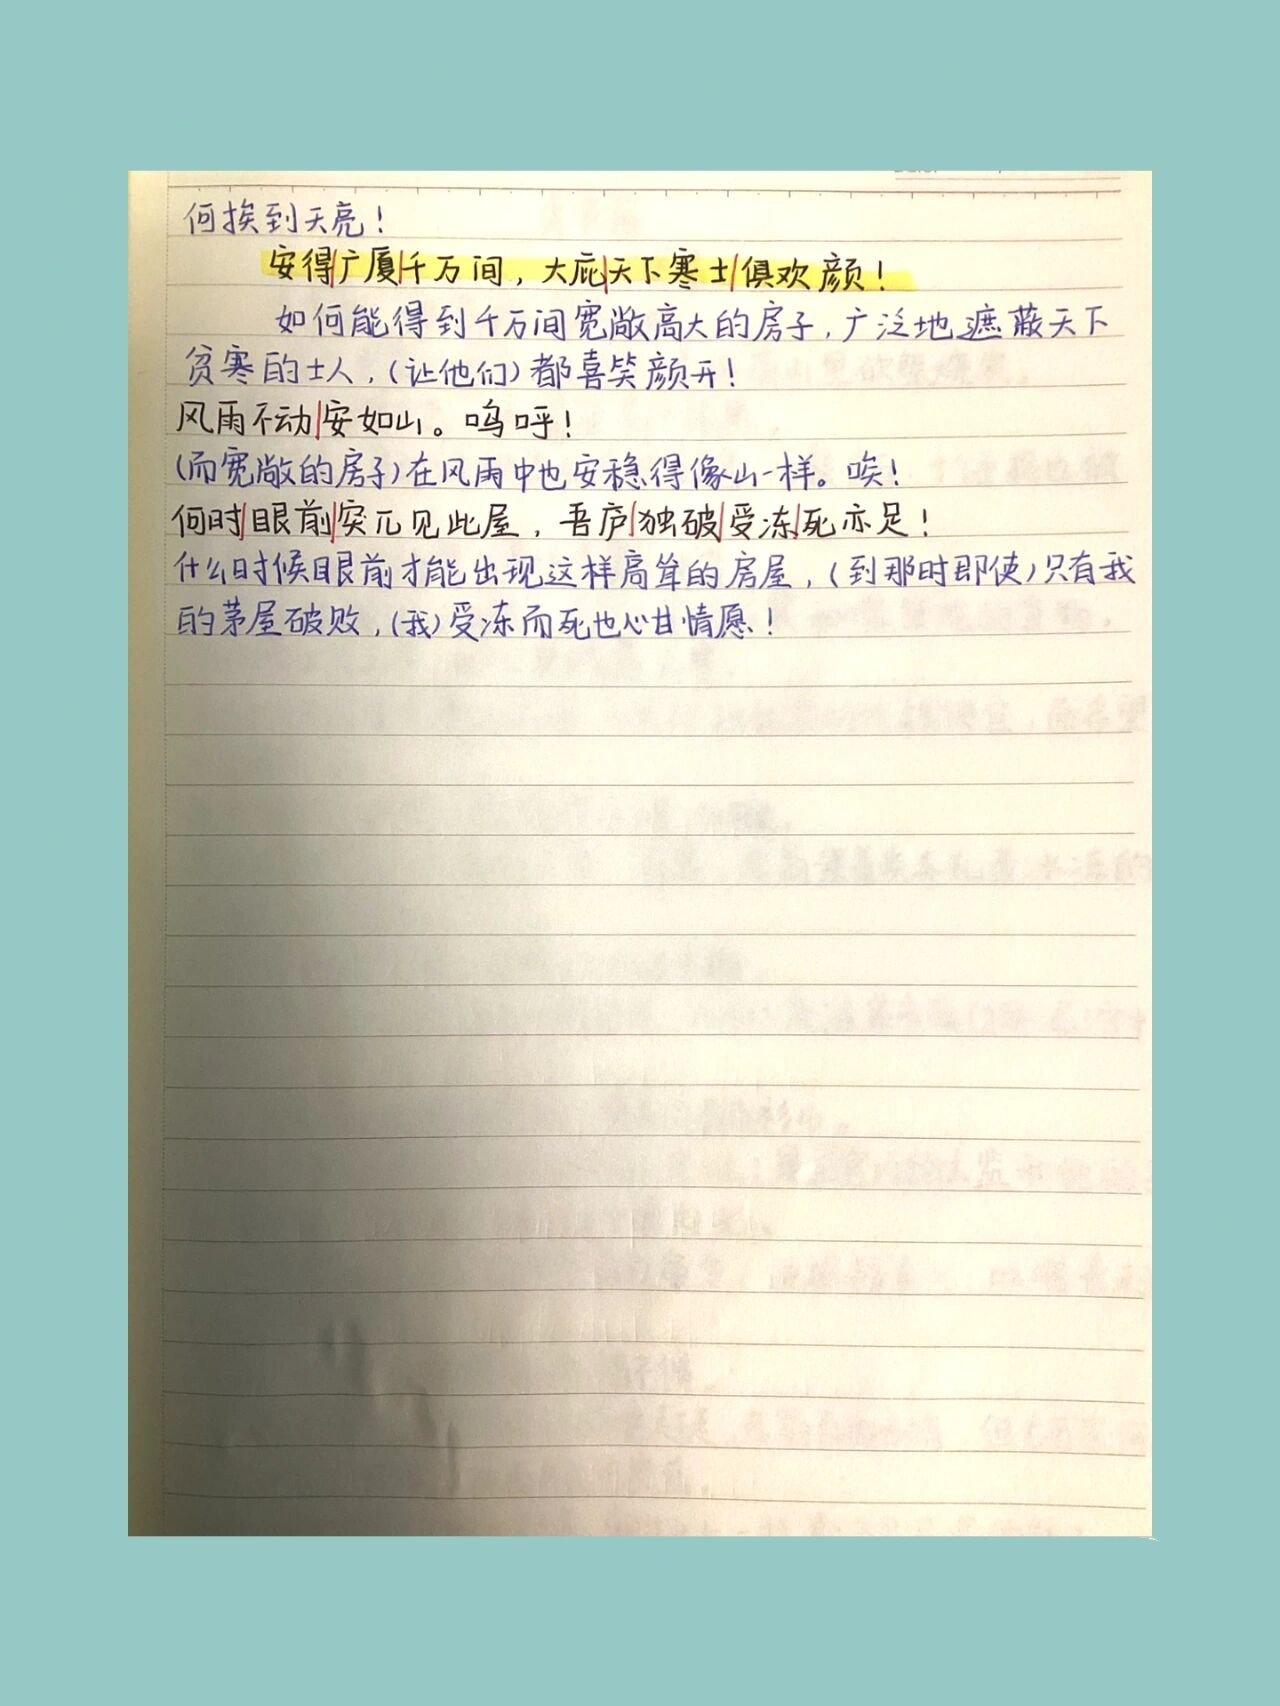 何挨到天亮！
安得|广厦|千万间，大庇|天下寒士|俱欢颜！
如何能得到千万间宽敞高大的房子，广泛地遮蔽天下
贫寒的士人，(让他们)都喜笑颜开！
风雨不动|安如山。呜呼！
(而宽敞的房子)在风雨中也安稳得像山一样。唉！
何时|眼前|突兀见此屋，吾庐|独破|受冻|死亦足！
什么时候眼前才能出现这样高耸的房屋，(到那时即使)只有我
的茅屋破败，(我)受冻而死也心甘情愿！